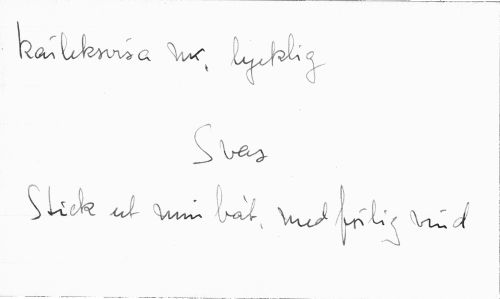 Kärleksvisa mk, lycklig
Svar
Stick ut min båt, med förlig vind